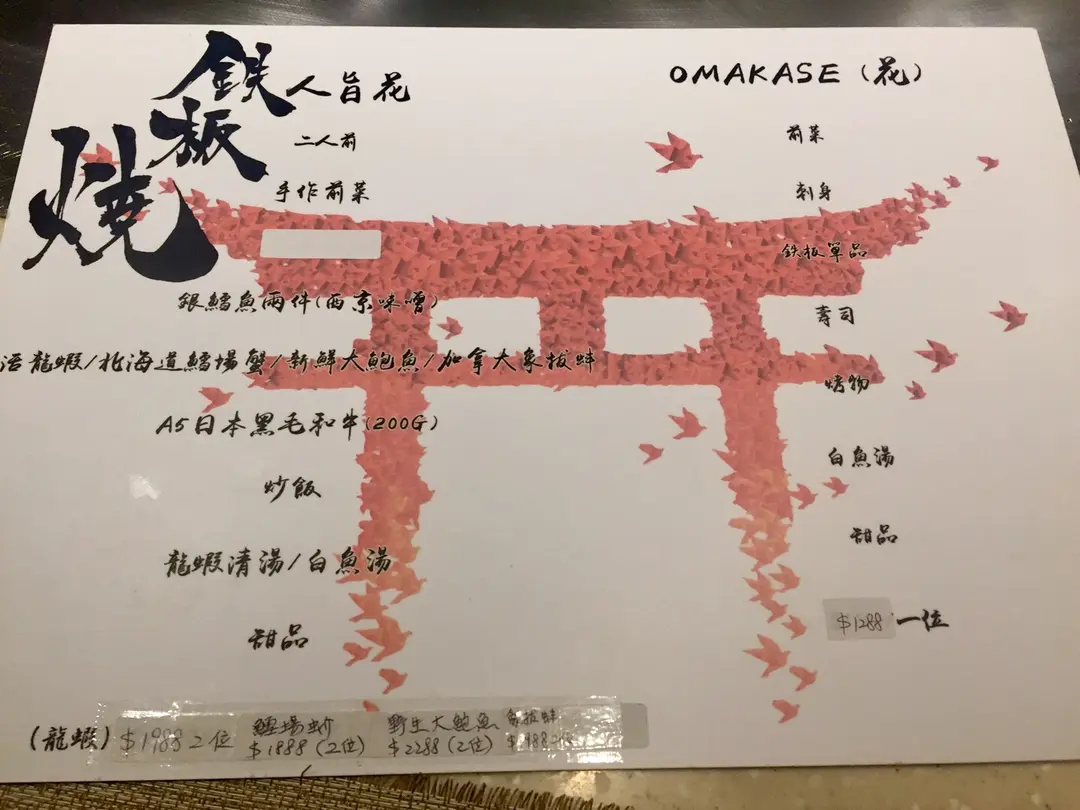 鉄板焼
人旨花
二人前
手作前菜
銀鱈魚兩件(西京味噌)
活龍蝦/北海道鱈場蟹/新鮮大鮑魚/加拿大象拔蚌
A5日本黑毛和牛(200G)
炒飯
龍蝦清湯/白魚湯
甜品
(龍蝦) $1988 2位
鱈場蟹 $1888 (2位)
野生大鮑魚 $2288 (2位)
象拔蚌
OMAKASE (花)
前菜
刺身
鉄板單品
壽司
烤物
白魚湯
甜品
$1288 一位